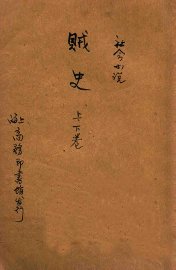 社会小说
賊史
上下卷
上海商務印書館发行